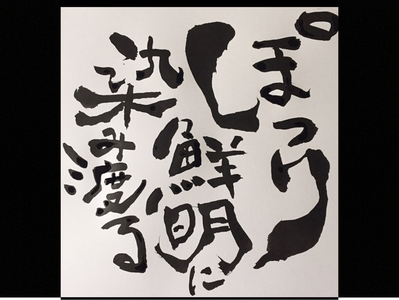 ぽつり
し鮮明に
染み渡る